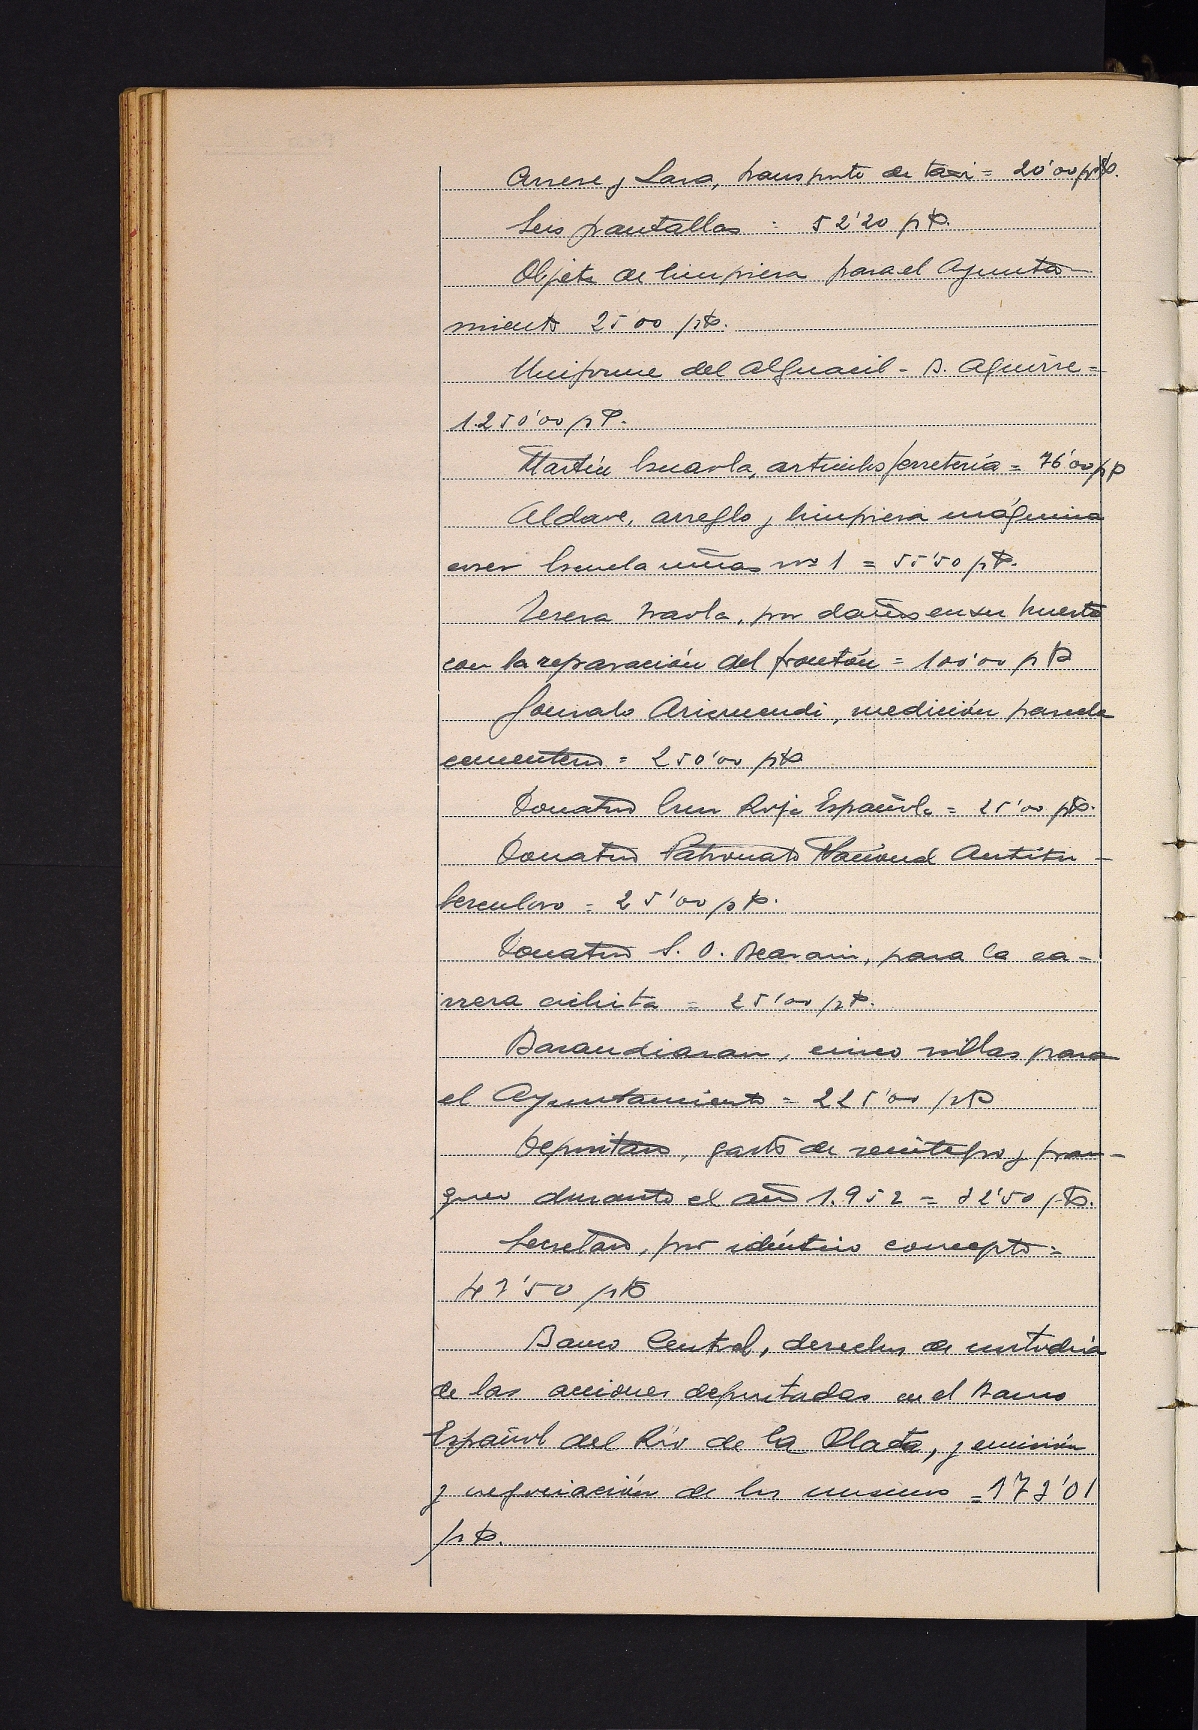 Arrese y Lasa, transporte de taxi = 20'00 pts.
Seis pantallas = 52'20 pts.
Objeto de limpieza para el Ayunta-
miento 25'00 pts.
Uniforme del Alguacil - B. Aguirre =
1.250'00 pts.
Martín Iruarla, artículos ferretería = 76'00 pts
Aldave, arreglo y limpieza máquina
coser Escuela niñas nº 1 = 55'50 pts.
Teresa , por daños en su huerto
con la reparación del frontón = 100'00 pts
Gonzalo Arizmendi, medición parcela
cementerio = 250'00 pts
Donativo Cruz Roja Española = 25'00 pts.
Donativo Patronato Nacional Antitu-
berculoso = 25'00 pts.
Donativo S. D. Beasain, para la ca-
rrera ciclista = 25'00 pts.
Barandiaran, cinco sillas para
el Ayuntamiento = 225'00 pts
Depositario, gastos de reintegro y fran-
queo durante el año 1.952 = 32'50 pts.
Secretario, por idéntico concepto =
47'50 pts
Banco Central, derechos de custodia
de las acciones depositadas en el Banco
Español del Río de la Plata, y emisión
y negociación de los mismos = 173'01
pts.